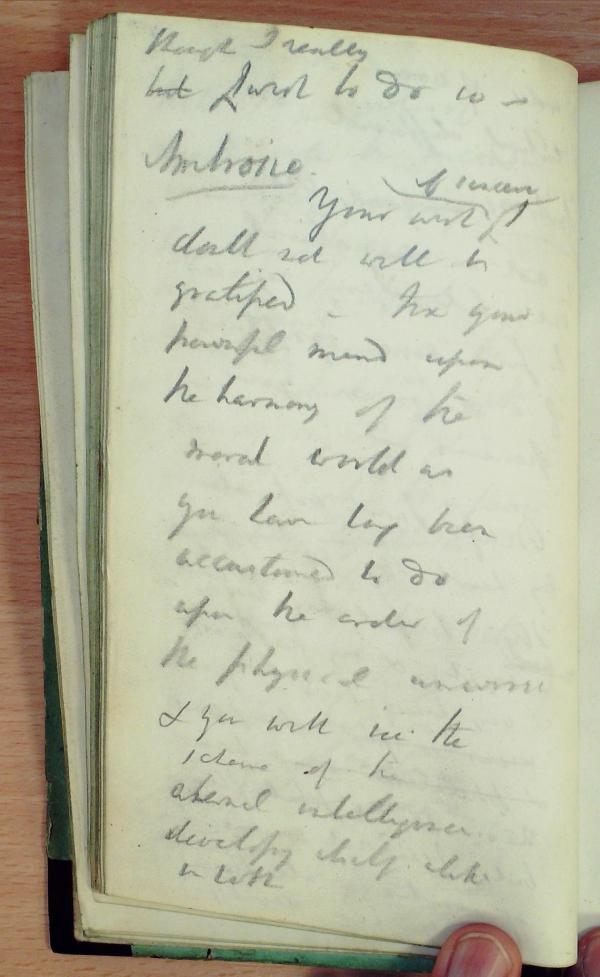 though I really
but I wish to do so -
Ambrosio.
if sincere
Your wish
shall not will be
gratified - Fix your
powerful mind upon
the harmony of the
moral world as
you have long been
accustomed to do
upon the order of
the physical universe
& you will see the
scheme of the
eternal intelligence
developing itself alike
in both